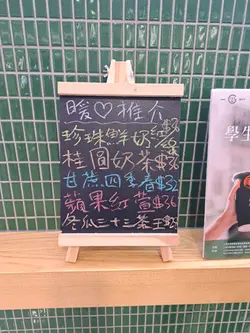 暖♡推介
珍珠鮮奶茶$36
桂圓奶茶$36
甘蔗四季春$32
蘋果紅萱$36
冬瓜三十三茶王$35
學生